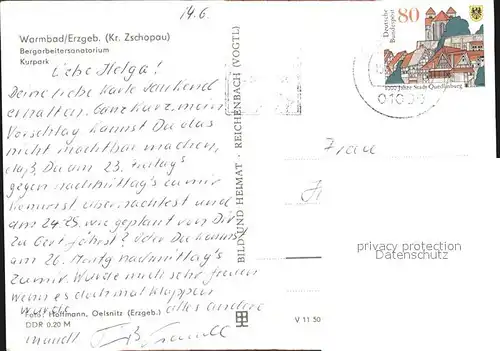 14.6.
Warmbad/Erzgeb. (Kr. Zschopau)
Bergarbeitersanatorium
Kurpark
Liebe Helga!
Deine liebe Karte dankend
erhalten. Ganz kurz, mein
Vorschlag kannst Du das
nicht machbar machen,
daß Du am 23. Freitags
gegen nachmittag's zu mir
kommst übernachtest und
am 24/25. wie geplant von Dir
zu Gert fährst? Oder Du kommst
am 26. Montg nachmittag's
zu mir. Würde mich sehr freuen
wenn es doch mal klappen
würde. alles andere
Foto: Hoffmann, Oelsnitz (Erzgeb.)
DDR 0.20 M
mündl.
BILD UND HEIMAT · REICHENBACH (VOGTL)
V 11 50
Deutsche
Bundespost
80
1000 Jahre Stadt Quedlinburg
Frau
privacy protection
Datenschutz